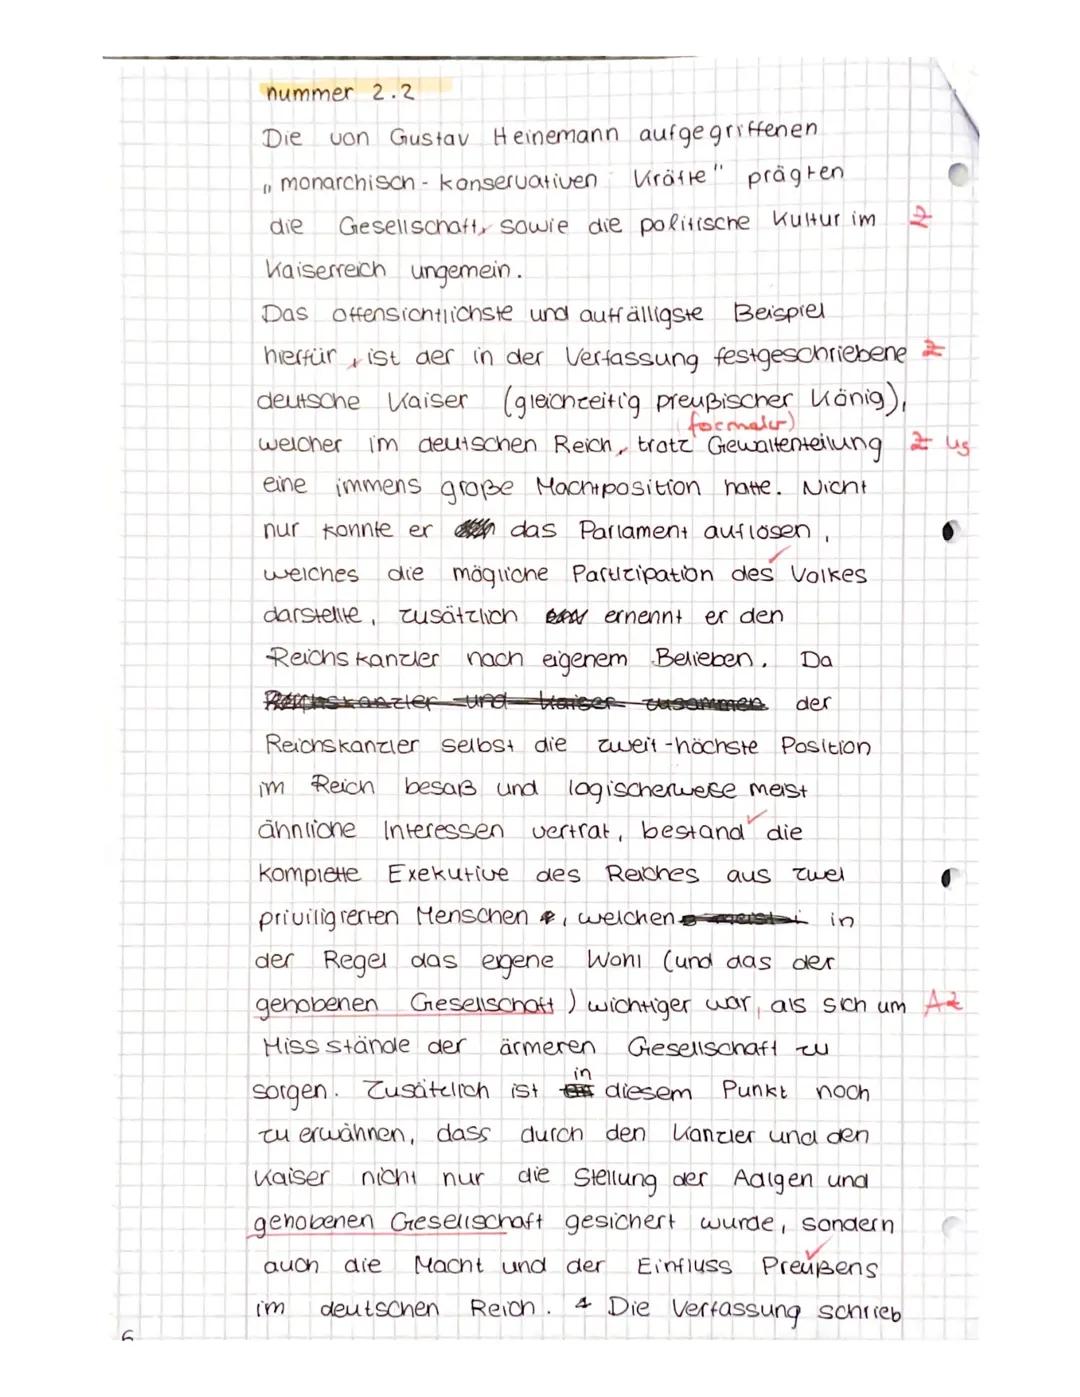 nummer 2.2
Die von Gustav Heinemann aufgegriffenen
„monarchisch-konservativen Kräfte" prägten
die Gesellschaft, sowie die politische Kultur im Z
Kaiserreich ungemein.
Das offensichtlichste und auffälligste Beispiel
hierfür, ist der in der Verfassung festgeschriebene Z
deutsche Kaiser (gleichzeitig preußischer König),
(formaler)
welcher im deutschen Reich, trotz Gewaltenteilung Z
eine immens große Machtposition hatte. Nicht
nur konnte er das Parlament auflösen,
welches die mögliche Partizipation des Volkes
darstellte, zusätzlich ernennt er den
Reichskanzler nach eigenem Belieben. Da
Reichskanzler und Kaiser zusammen der
Reichskanzler selbst die zweit-höchste Position
im Reich besaß und logischerweise meist
ähnliche Interessen vertrat, bestand die
komplette Exekutive des Reiches aus zwei
priviligierten Menschen, welchen in
der Regel das eigene Wohl (und das der
gehobenen Gesellschaft) wichtiger war, als sich um A Z
Missstände der ärmeren Gesellschaft zu
in
sorgen. Zusätzlich ist diesem Punkt noch
zu erwähnen, dass durch den Kanzler und den
Kaiser nicht nur die Stellung der Adligen und
gehobenen Gesellschaft gesichert wurde, sondern
auch die Macht und der Einfluss Preußens
im deutschen Reich. Die Verfassung schrieb
6